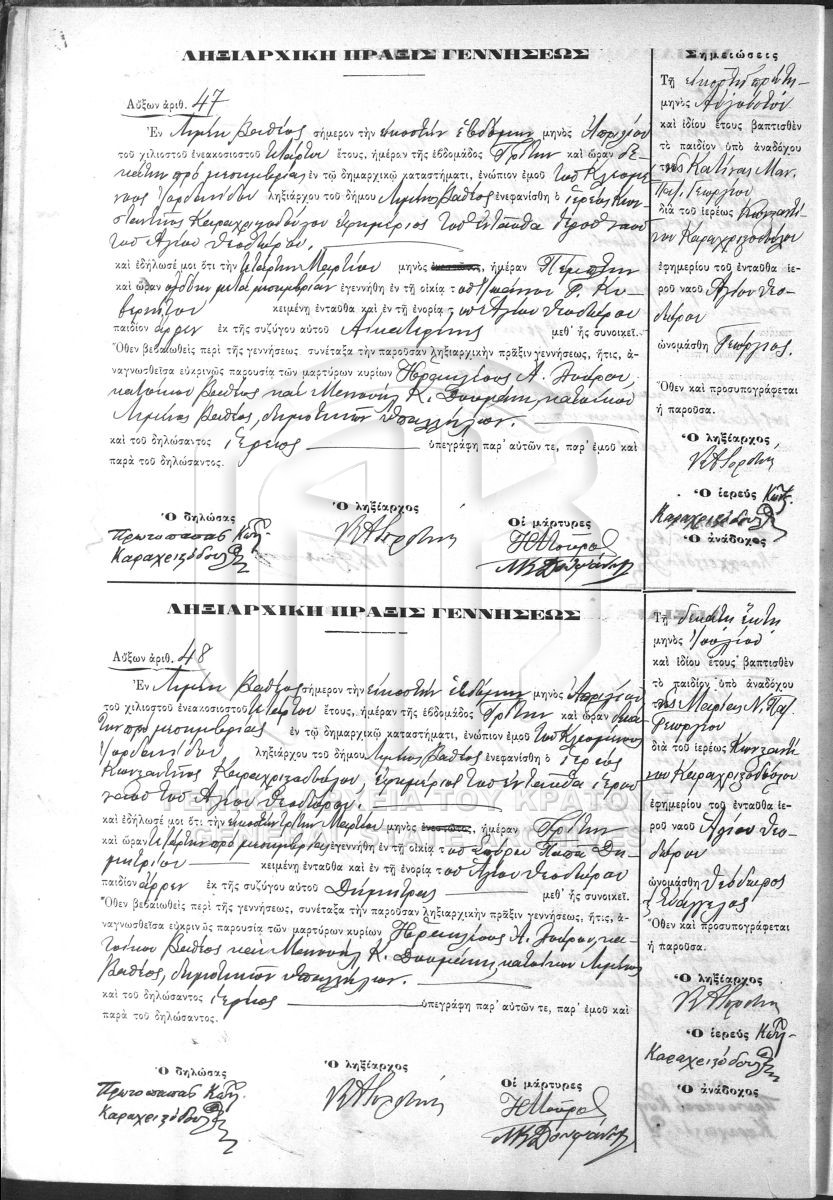 ΛΗΞΙΑΡΧΙΚΗ ΠΡΑΞΙΣ ΓΕΝΝΗΣΕΩΣ
Αὔξων ἀριθ. 47
Ἐν Λιμένι Βαθέος σήμερον τὴν εἰκοστὴν ἑβδόμην μηνὸς Ἀπριλίου
τοῦ χιλιοστοῦ ἐνεακοσιοστοῦ τετάρτου ἔτους, ἡμέραν τῆς ἑβδομάδος Τρίτην καὶ ὥραν δε-
κάτην πρὸ μεσημβρίας ἐν τῷ δημαρχικῷ καταστήματι, ἐνώπιον ἐμοῦ τοῦ Κλεομέ-
νους Ἰορδανίδου ληξιάρχου τοῦ δήμου Λιμένος Βαθέος ἐνεφανίσθη ὁ ἱερεὺς Κων-
σταντῖνος Καραχριζόδουλου ἐφημέριος τοῦ ἐνταῦθα ἱεροῦ ναοῦ
τοῦ Ἁγίου Θεοδώρου.
καὶ ἐδήλωσέ μοι ὅτι τὴν τετάρτην Μαρτίου μηνὸς ἐνεστῶτος, ἡμέραν Πέμπτην
καὶ ὥραν ὀγδόην μετὰ μεσημβρίαν ἐγεννήθη ἐν τῇ οἰκίᾳ τοῦ Ἰωάννου
κειμένῃ ἐνταῦθα καὶ ἐν τῇ ἐνορίᾳ τοῦ Ἁγίου Θεοδώρου
παιδίον ἄρρεν ἐκ τῆς συζύγου αὐτοῦ Αἰκατερίνης μεθ' ἧς συνοικεῖ.
Ὅθεν βεβαιωθεὶς περὶ τῆς γεννήσεως, συνέταξα τὴν παροῦσαν ληξιαρχικὴν πρᾶξιν γεννήσεως, ἥτις, ἀ-
ναγνωσθεῖσα εὐκρινῶς παρουσίᾳ τῶν μαρτύρων κυρίων Ἡρακλέους Α. Μούρου,
κατοίκου Βαθέος καὶ Μανουὴλ Κ. Δουμάνη, κατοίκου
Λιμένος Βαθέος, δημοτικῶν ὑπαλλήλων.
καὶ τοῦ δηλώσαντος ἱερέως ὑπεγράφη παρ' αὐτῶν τε, παρ' ἐμοῦ καὶ
παρὰ τοῦ δηλώσαντος.
Ὁ δηλώσας
Πρωτοπαπας Κων.
Καραχριζόδουλου
Ὁ ληξίαρχος
Οἱ μάρτυρες
Η Μούρος
ΜΚ Δουμάνης
Σημειώσεις
Τῇ εἰκοστῇ πρώτῃ
μηνὸς Αὐγούστου
καὶ ἰδίου ἔτους βαπτισθὲν
τὸ παιδίον ὑπὸ ἀναδόχου
τῆς Κατίνας Μαν.
Γεωργίου
διὰ τοῦ ἱερέως Κωνσταντί-
νου Καραχριζοδούλου
ἐφημερίου τοῦ ἐνταῦθα ἱε-
ροῦ ναοῦ Ἁγίου Θεο-
δώρου
ὠνομάσθη Γεώργιος.
Ὅθεν καὶ προσυπογράφεται
ἡ παροῦσα.
Ὁ ληξίαρχος
Ὁ ἱερεὺς Κων.
Καραχριζόδουλου
Ὁ ἀνάδοχος
ΛΗΞΙΑΡΧΙΚΗ ΠΡΑΞΙΣ ΓΕΝΝΗΣΕΩΣ
Αὔξων ἀριθ. 48
Ἐν Λιμένι Βαθέος σήμερον τὴν εἰκοστὴν ἑβδόμην μηνὸς Ἀπριλίου
τοῦ χιλιοστοῦ ἐνεακοσιοστοῦ τετάρτου ἔτους, ἡμέραν τῆς ἑβδομάδος Τρίτην καὶ ὥραν δεκά-
την πρὸ μεσημβρίας ἐν τῷ δημαρχικῷ καταστήματι, ἐνώπιον ἐμοῦ τοῦ Κλεομένους
Ἰορδανίδου ληξιάρχου τοῦ δήμου Λιμένος Βαθέος ἐνεφανίσθη ὁ ἱερεὺς
Κωνσταντῖνος Καραχριζοδούλου, ἐφημέριος τοῦ ἐνταῦθα ἱεροῦ
ναοῦ τοῦ Ἁγίου Θεοδώρου.
καὶ ἐδήλωσέ μοι ὅτι τὴν εἰκοστὴν τρίτην Μαρτίου μηνὸς ἐνεστῶτος, ἡμέραν Τρίτην
καὶ ὥραν τετάρτην πρὸ μεσημβρίας ἐγεννήθη ἐν τῇ οἰκίᾳ τοῦ Σπύρου Παπα Δη-
μητρίου κειμένῃ ἐνταῦθα καὶ ἐν τῇ ἐνορίᾳ τοῦ Ἁγίου Θεοδώρου
παιδίον ἄρρεν ἐκ τῆς συζύγου αὐτοῦ Δήμητρας μεθ' ἧς συνοικεῖ.
Ὅθεν βεβαιωθεὶς περὶ τῆς γεννήσεως, συνέταξα τὴν παροῦσαν ληξιαρχικὴν πρᾶξιν γεννήσεως, ἥτις, ἀ-
ναγνωσθεῖσα εὐκρινῶς παρουσίᾳ τῶν μαρτύρων κυρίων Ἡρακλέους Α. Μούρου, κα-
τοίκου Βαθέος καὶ Μανουὴλ Κ. Δουμάνη, κατοίκου Λιμένος
Βαθέος, δημοτικῶν ὑπαλλήλων.
καὶ τοῦ δηλώσαντος ἱερέως ὑπεγράφη παρ' αὐτῶν τε, παρ' ἐμοῦ καὶ
παρὰ τοῦ δηλώσαντος.
Ὁ δηλώσας
Πρωτοπαπας Κων.
Καραχριζόδουλου
Ὁ ληξίαρχος
Οἱ μάρτυρες
Η Μούρος
ΜΚ Δουμάνης
Τῇ δεκάτῃ ἕκτῃ
μηνὸς Ἰουλίου
καὶ ἰδίου ἔτους βαπτισθὲν
τὸ παιδίον ὑπὸ ἀναδόχου
τῆς Μαρίας Ν.
Γεωργίου
διὰ τοῦ ἱερέως Κωνσταντί-
νου Καραχριζοδούλου
ἐφημερίου τοῦ ἐνταῦθα ἱε-
ροῦ ναοῦ Ἁγίου Θεο-
δώρου
ὠνομάσθη Θεόδωρος
Εὐάγγελος
Ὅθεν καὶ προσυπογράφεται
ἡ παροῦσα.
Ὁ ληξίαρχος
Ὁ ἱερεὺς Κων.
Καραχριζόδουλου
Ὁ ἀνάδοχος
ΓΕΝΙΚΑ ΑΡΧΕΙΑ ΤΟΥ ΚΡΑΤΟΥΣ
GENERAL STATE ARCHIVES